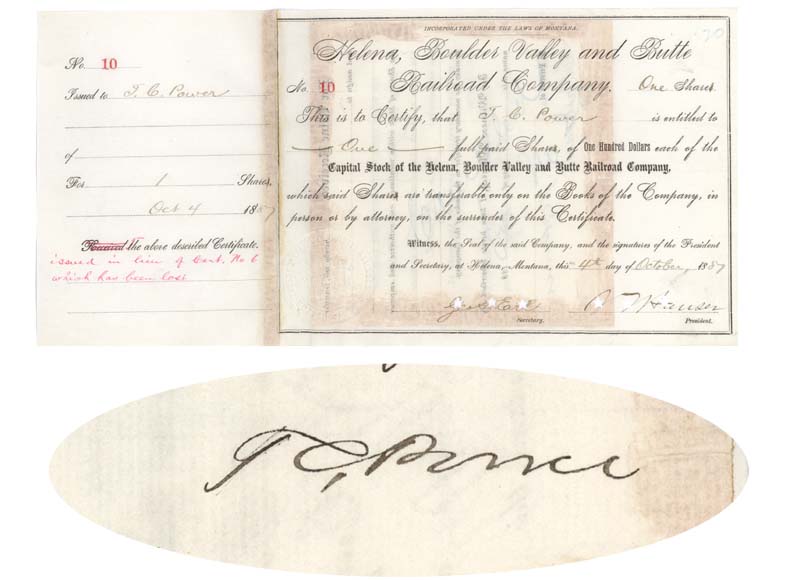 No. 10
Issued to T. C. Power
of
For 1 Shares,
Oct 4 1887
Received the above described Certificate.
issued in lieu of Cert. No 6
which has been lost
INCORPORATED UNDER THE LAWS OF MONTANA.
Helena, Boulder Valley and Butte
No. 10 Railroad Company. One Shares
This is to Certify, that T. C. Power is entitled to
One full paid Shares, of One Hundred Dollars each of the
Capital Stock of the Helena, Boulder Valley and Butte Railroad Company,
which said Shares are transferable only on the Books of the Company, in
person or by attorney, on the surrender of this Certificate.
Witness, the Seal of the said Company, and the signatures of the President
and Secretary, at Helena, Montana, this 4th day of October, 1887
Hauser
Secretary. President.
T C Power